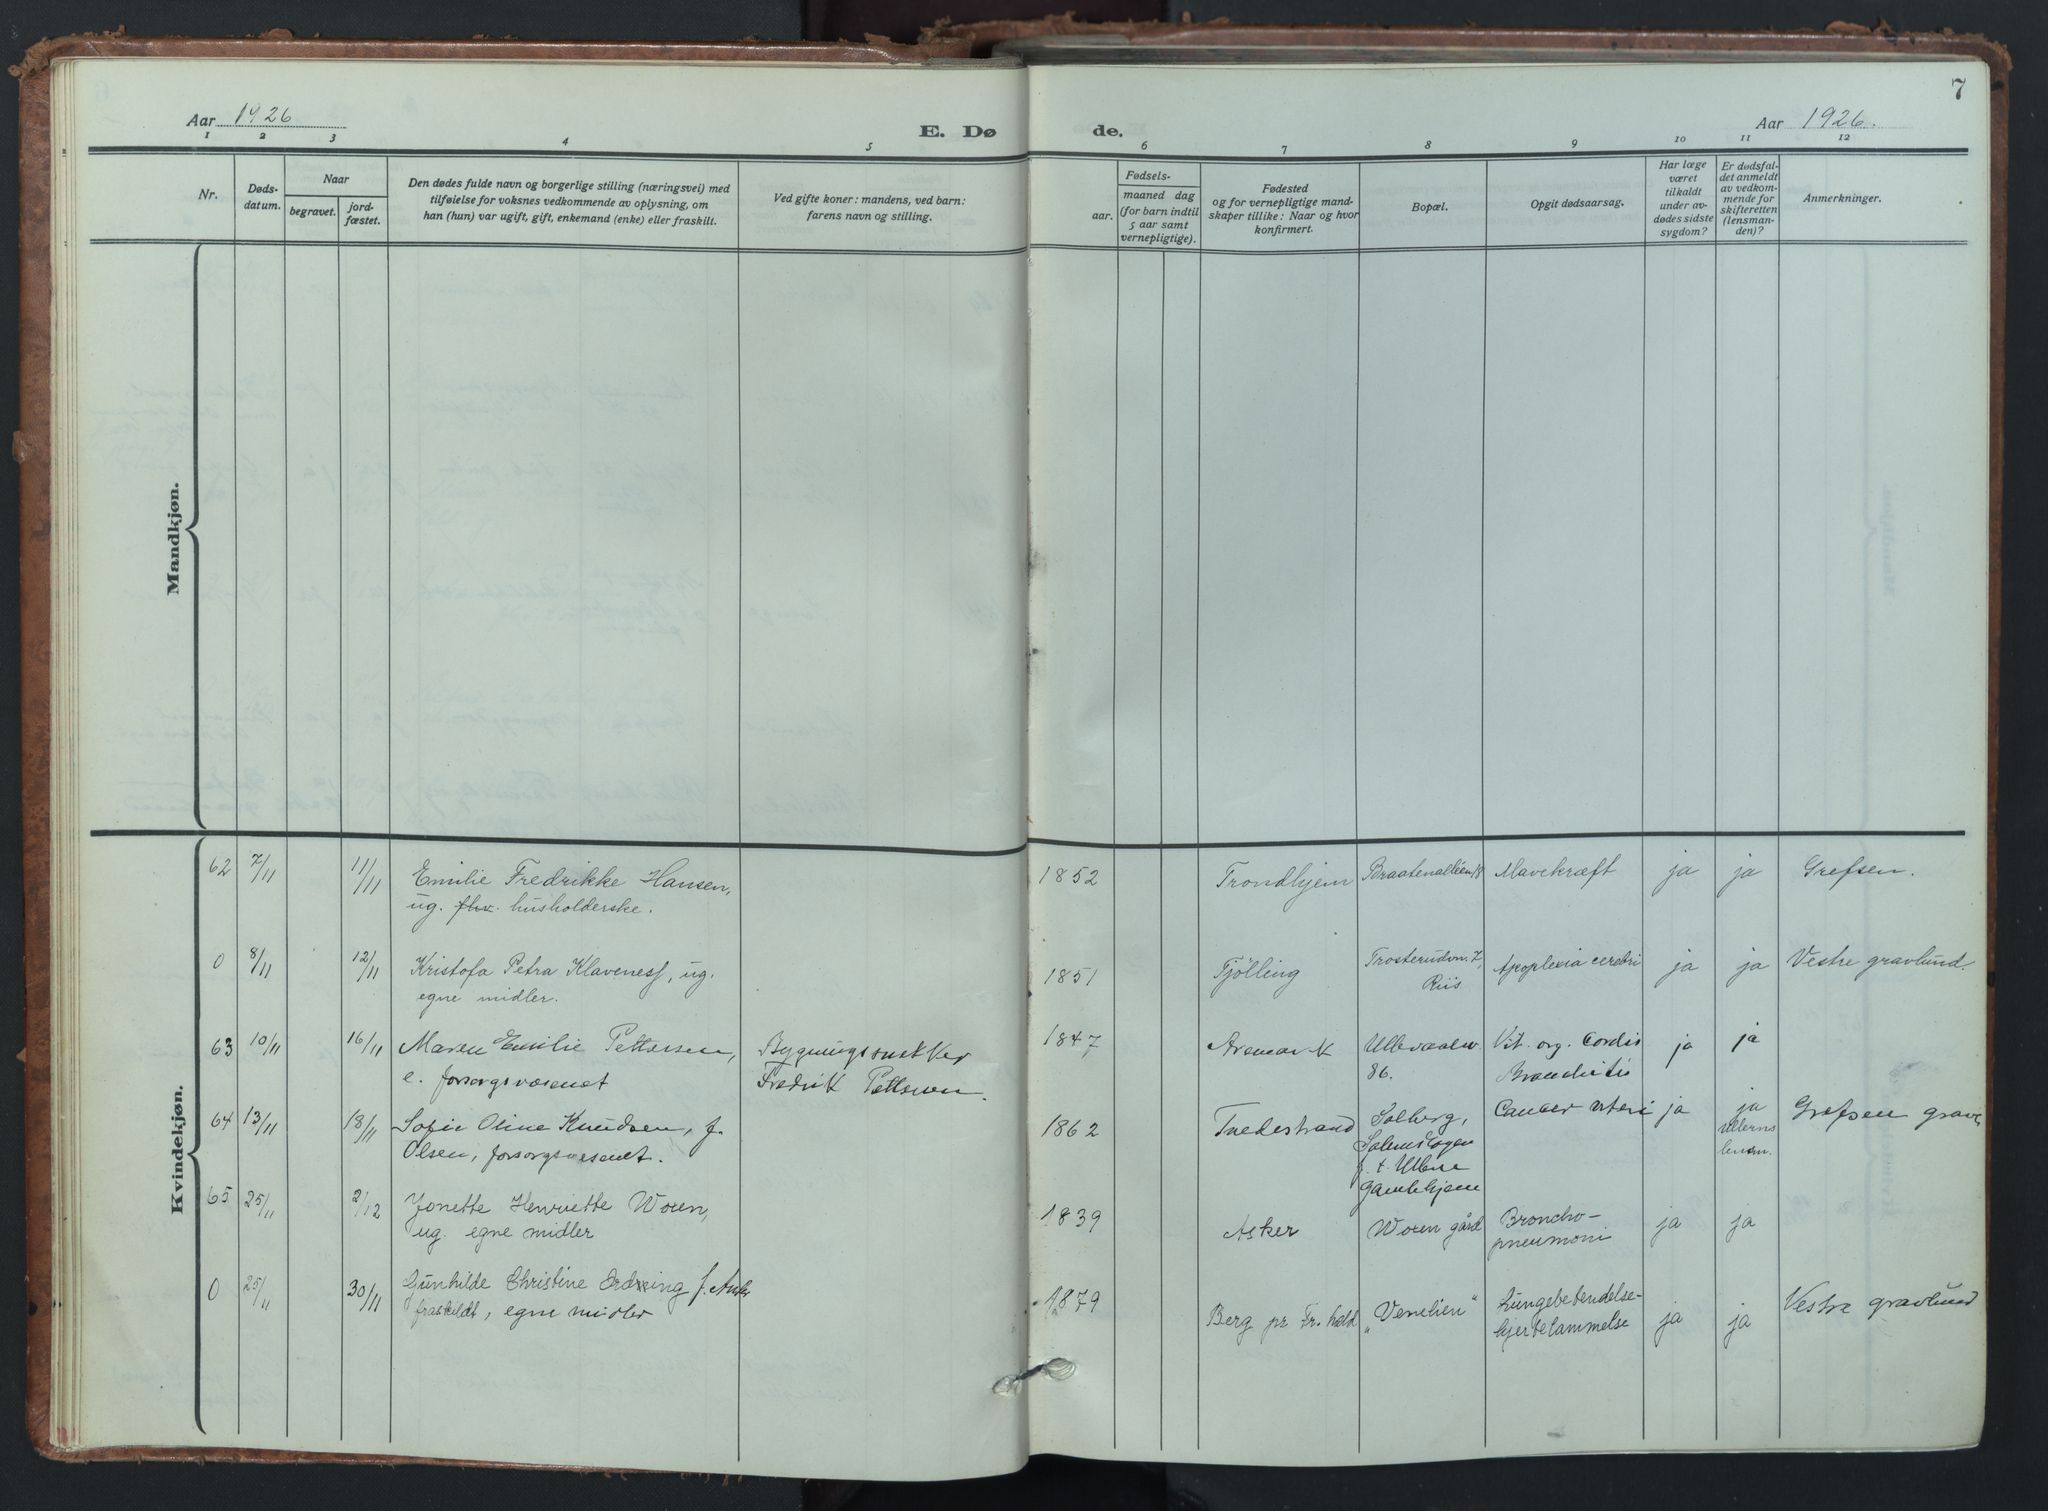 7
Aar 1926
E. Dø de.
Aar 1926.
1 2 3 4 5 6 7 8 9 10 11 12
Nr.
Døds-
datum.
Naar
begravet.
jord-
fæstet.
Den dødes fulde navn og borgerlige stilling (næringsvei) med
tilføielse for voksnes vedkommende av oplysning, om
han (hun) var ugift, gift, enkemand (enke) eller fraskilt.
Ved gifte koner: mandens, ved barn:
farens navn og stilling.
Fødsels-
aar.
maaned dag
(for barn indtil
5 aar samt
vernepligtige).
Fødested
og for vernepligtige mand-
skaper tillike: Naar og hvor
konfirmert.
Bopæl.
Opgit dødsaarsag.
Har læge
været
tilkaldt
under av-
dødes sidste
sygdom?
Er dødsfal-
det anmeldt
av vedkom-
mende for
skifteretten
(lensman-
den)?
Anmerkninger.
Mandkjøn.
Kvindekjøn.
62 7/11 11/11 Emilie Fredrikke Hansen, 1852 Trondhjem Braatenalléen 18 Mavekræft ja ja Grefsen.
ug. fhv. husholderske.
0 8/11 12/11 Kristofa Petra Klaveness, ug. 1851 Tjölling Trosterudvn. 7, Apoplexia cerebri ja ja Vestre gravlund.
egne midler. Riis
63 10/11 16/11 Maren Emilie Pettersen, Bygningssnekker 1847 Aremark Ullevaalsv. Vit. org. Cordis ja ja
e. forsorgsvæsenet Fredrik Pettersen. 86. Bronchitis
64 13/11 18/11 Sofie Oline Knudsen, f. 1862 Tvedestrand Solberg, Cancer uteri ja ja Grefsen grav
Olsen, forsorgsvesenet. Ullerns
lensm.
gamlehjem
65 25/11 2/12 Jonette Henriette Woxen, 1839 Asker Woxen gård Broncho- ja ja
ug. egne midler pneumoni
0 25/11 30/11 Gunhilde Christine Ordning f. 1879 Berg pr Fr.hald „Venelien" Lungebetendelse- ja ja Vestre gravlund
fraskildt, egne midler hjertelammelse